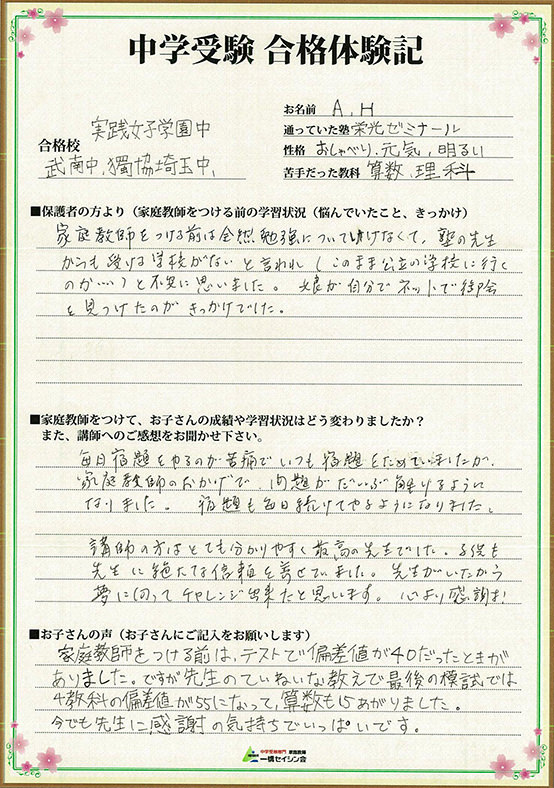 中学受験 合格体験記
お名前 A.H
合格校 実践女子学園中
武南中、獨協埼玉中、
通っていた塾 栄光ゼミナール
性格 おしゃべり、元気、明るい
苦手だった教科 算数、理科
■保護者の方より（家庭教師をつける前の学習状況（悩んでいたこと、きっかけ）
家庭教師をつける前は全然勉強について行けなくて、塾の先生
からも受ける学校がないと言われ（このまま公立の学校に行く
のか……）と不安に思いました。娘が自分でネットで御会
を見つけたのがきっかけでした。
■家庭教師をつけて、お子さんの成績や学習状況はどう変わりましたか？
また、講師へのご感想をお聞かせ下さい。
毎日宿題をやるのが苦痛でいつも宿題をためていましたが、
家庭教師のおかげで、問題がだいぶ解けるように
なりました。宿題も毎日続けてやるようになりました。
講師の方はとても分かりやすく最高の先生でした。子供も
先生に絶大な信頼を寄せていました。先生がいたから
夢に向ってチャレンジ出来たと思います。心より感謝
■お子さんの声（お子さんにご記入をお願いします）
家庭教師をつける前は、テストで偏差値が40だったときが
ありました。ですが先生のていねいな教えで最後の模試では
4教科の偏差値が55になって、算数も15あがりました。
今でも先生に感謝の気持ちでいっぱいです。
中学受験専門 家庭教師
一橋セイシン会